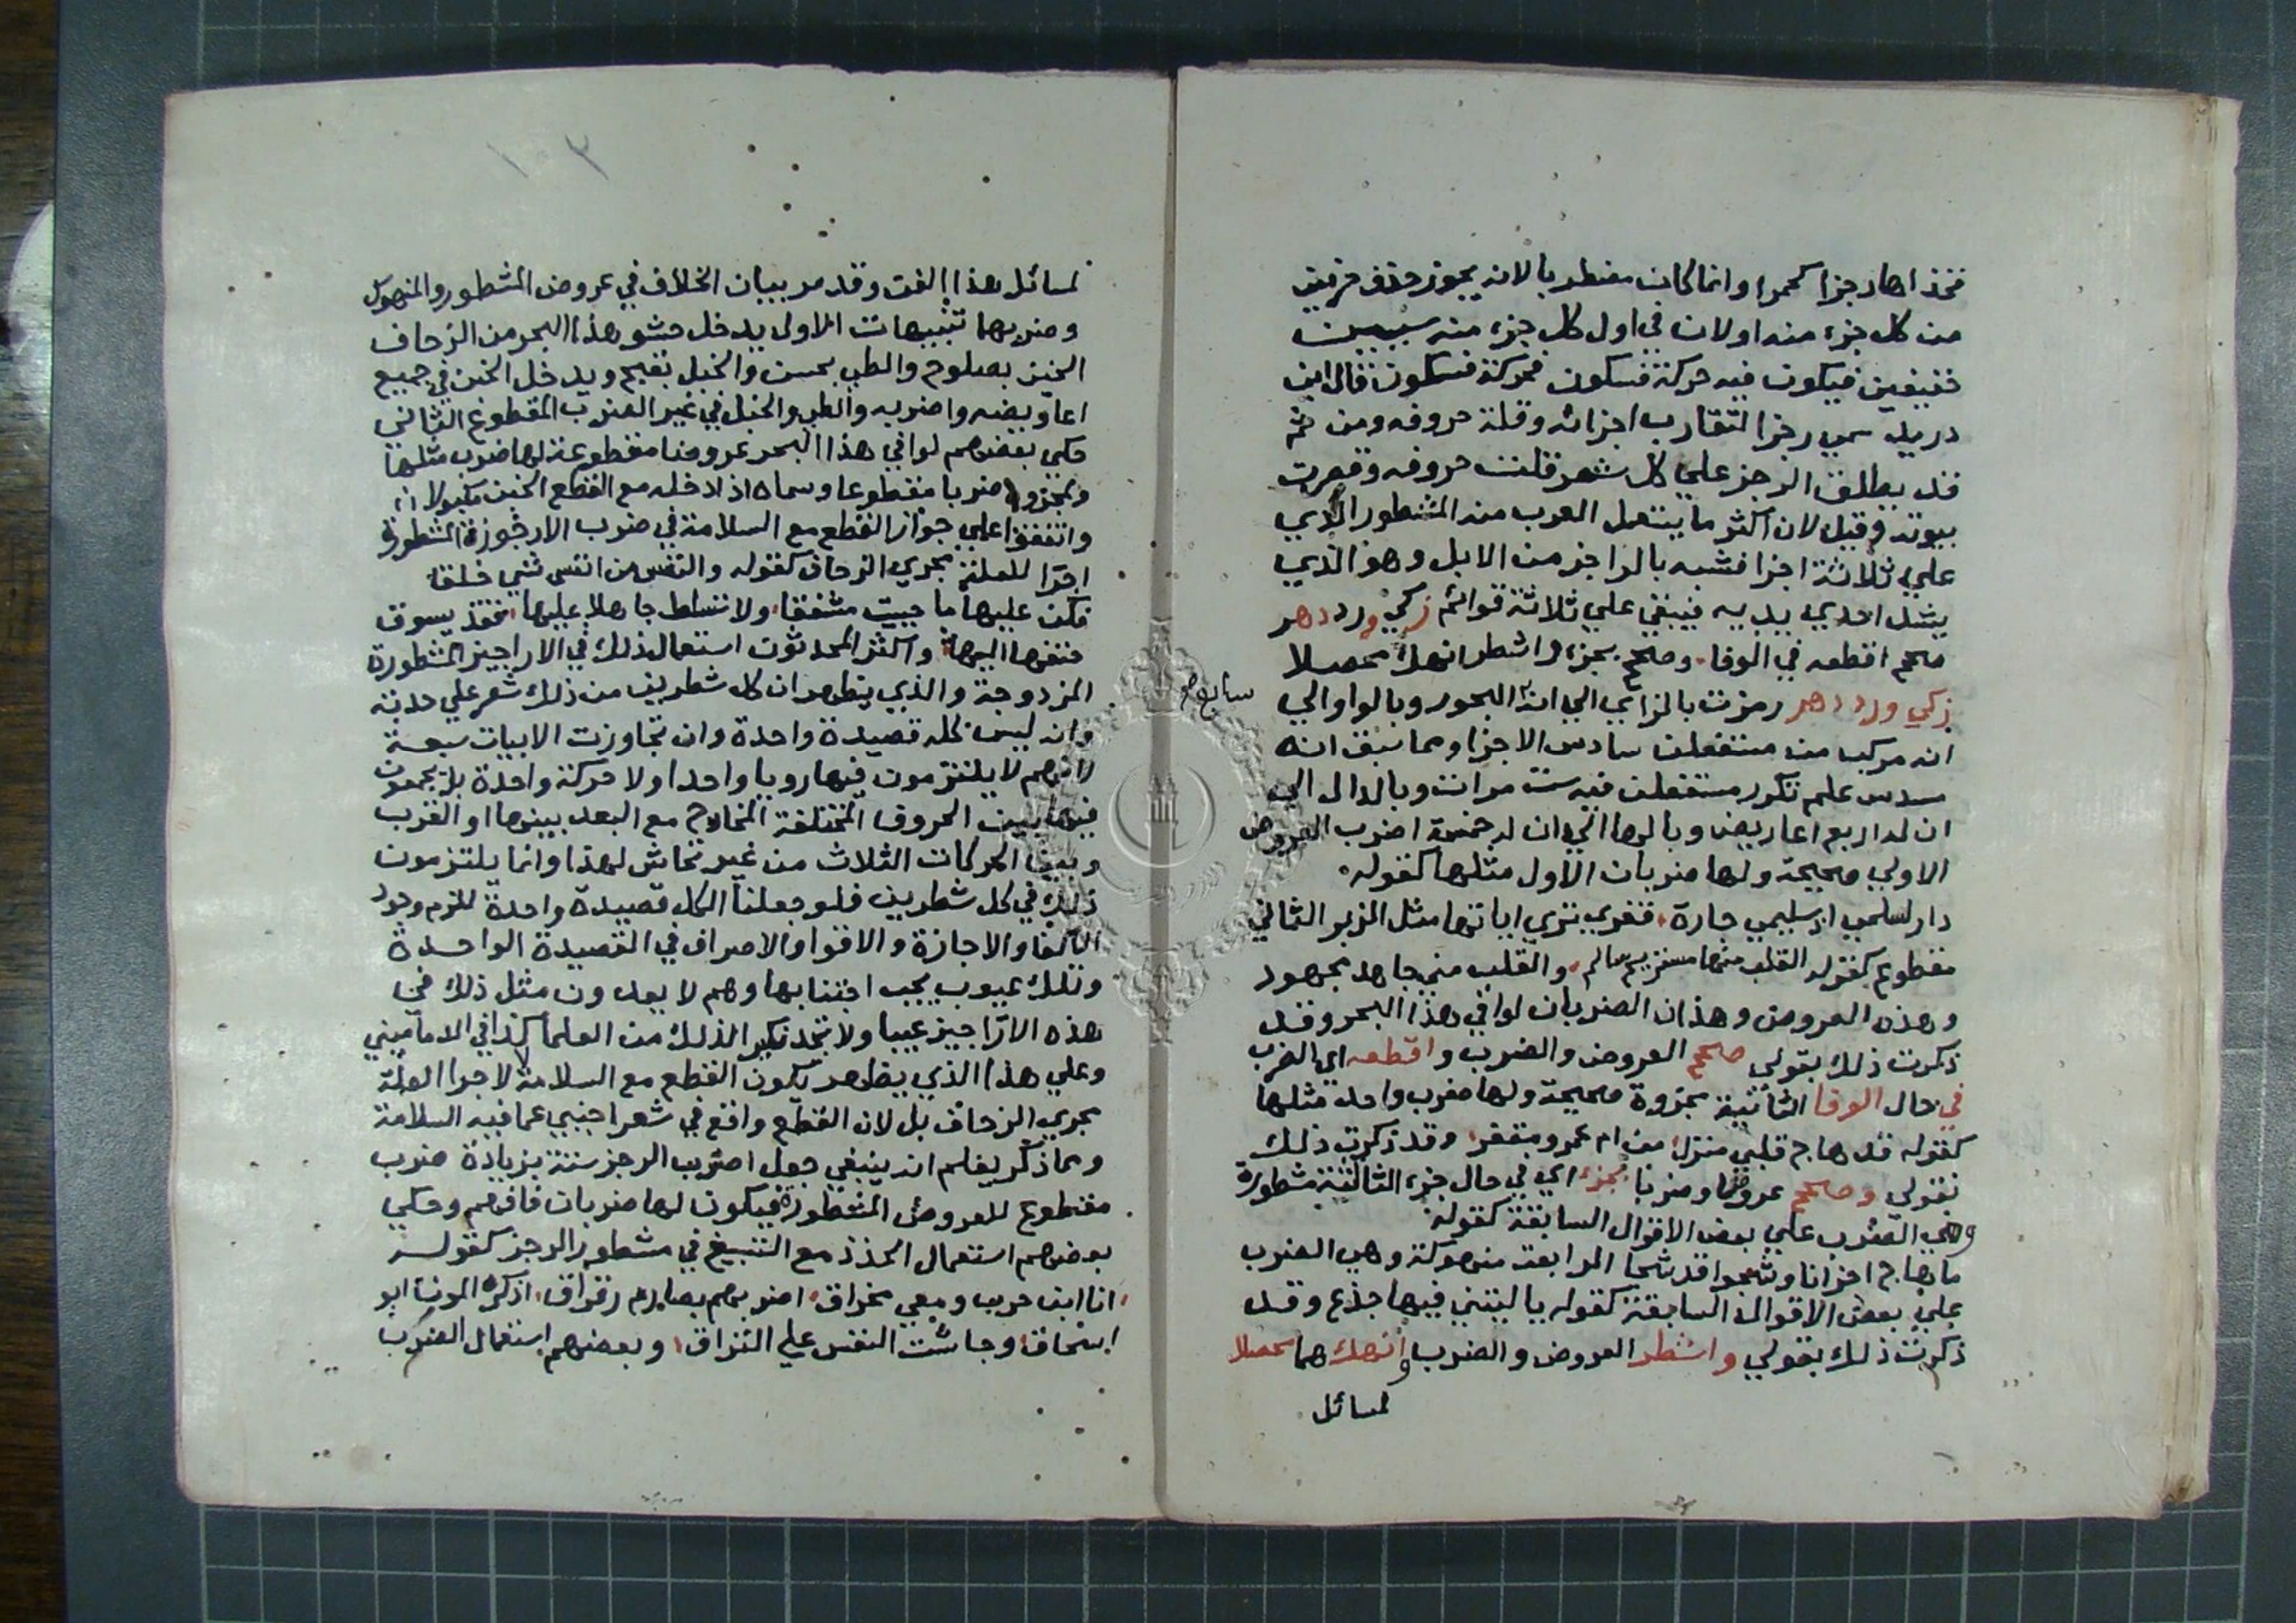 فخذاها رجزا كحمرا وانما كان مضطربا لانه يجوز حذف حرفين
من كل جزء منه اولان في اول كل جزء منه سببين
خفيفين فيكون فيه حركة فسكون فحركة فسكون قال ابن
دريد سمي رجزا لتقارب اجزائه وقلة حروفه ومن ثم
قد يطلق الرجز علي كل شعر قلت حروفه وقصرت
بيوته وقيل لان اكثر ما يستعمل العرب منه المشطور الذي
علي ثلاثة اجزا فشبه بالراجز من الابل وهو الذي
يشد احدي يديه فيبقي علي ثلاثة قوائم زكي ورد دهر
صحح اقطعه في الوفا، وصحح بجزء واشطر انهك محصلا
زكي ورد دهر رمزت بالزاي الي انه سابع البحور وبالواو الي
انه مركب من مستفعلن سادس الاجزا ومما سبق انه
مسدس علم تكرر مستفعلن فيه ست مرات وبالدال الي
ان له اربع اعاريض وبالها الي ان له خمسة اضرب العروض
الاولي صحيحة ولها ضربان الاول مثلها كقوله
دار لسلمي اذ سليمي جارة، قفري تري اياتها مثل الزبر الثاني
مقطوع كقوله القلب منها مستريح سالم، والقلب مني جاهد مجهود
وهذه العروض وهذان الضربان لوافي هذا البحر وقد
ذكرت ذلك بقولي صحح العروض والضرب واقطعه اي الضرب
في حال الوفا الثانية مجزوة صحيحة ولها ضرب واحد مثلها
كقوله قد هاج قلبي منزل، من ام عمرو مقفر، وقد ذكرت ذلك
بقولي وصحح عروضا وضربا بجزء اي في حال جزء الثالثة مشطورة
وهي الضرب علي بعض الاقوال السابقة كقوله
ما هاج احزانا وشجوا قد شجا الرابعة منهوكة وهي الضرب
علي بعض الاقوال السابقة كقوله يا ليتني فيها جذع وقد
ذكرت ذلك بقولي واشطر العروض والضرب وانهك هما محصلا
لمسائل
١٠٣
لمسائل هذا الفن وقد مر بيان الخلاف في عروض المشطور والمنهوك
وضربهما تنبيهات الاول يدخل حشو هذا البحر من الزحاف
الخبن بصلوح والطي بحسن والخبل بقبح ويدخل الخبن في جميع
اعاريضه واضربه والطي والخبل في غير الضرب المقطوع الثاني
حكي بعضهم لوافي هذا البحر عروضا مقطوعة لها ضرب مثلها
ولمجزوه ضربا مقطوعا وسماه اذا دخله مع القطع الخبن مكبولا
واتفقوا علي جواز القطع مع السلامة في ضرب الارجوزة المشطورة
اجرا للعلة مجري الزحاف كقوله والنفس من انفس شي خلقا
فكن عليها ما حييت مشفقا، ولا تسلط جاهلا عليها، فقد يسوق
حتفها اليها، واكثر المحدثون استعمال ذلك في الاراجيز المشطورة
المزدوجة والذي يظهر ان كل شطرين من ذلك شعر علي حدته
وانه ليس كله قصيدة واحدة وان تجاوزت الابيات سبعة
لانهم لا يلتزمون فيها رويا واحدا ولا حركة واحدة بل يجمعون
فيها بين الحروف المختلفة المخارج مع البعد بينها او القرب
وبين الحركات الثلاث من غير تحاش لهذا وانما يلتزمون
ذلك في كل شطرين فلو جعلنا الكل قصيدة واحدة للزم وجود
الاكفا والاجازة والاقوا والاصراف في القصيدة الواحدة
وتلك عيوب يجب اجتنابها وهم لا يعدون مثل ذلك في
هذه الاراجيز عيبا ولا تجد نكيرا لذلك من العلما كذا في الدماميني
وعلي هذا الذي يظهر لا يكون القطع مع السلامة لاجرا العلة
مجري الزحاف بل لان القطع واقع في شعر اجنبي عما فيه السلامة
ومما ذكر يعلم انه ينبغي جعل اضرب الرجز ستة بزيادة ضرب
مقطوع للعروض المشطورة فيكون لها ضربان فافهم وحكي
بعضهم استعمال الحذذ مع التسبيغ في مشطور الرجز كقوله
انا ابن حرب ومعي مخراق، اضربهم بصارم رقراق، اذكره الموت ابو
اسحاق، وجاشت النفس علي التراق، وبعضهم استعمال الضرب